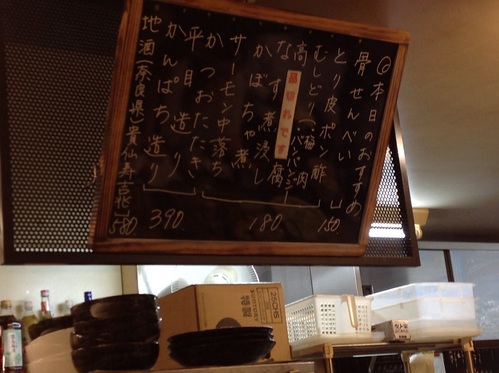 ◎本日のおすすめ
骨せんべい
とり皮ポン酢
むしどり(・梅肉
・バンバンジー)
150
高
腐
品切れです
なす煮浸し
かぼちゃ煮
180
サーモン中落ち
かつおたたき
平目造り
かんぱち造り
390
地酒(奈良県)貴仙寿吉兆
580
SUNTORY